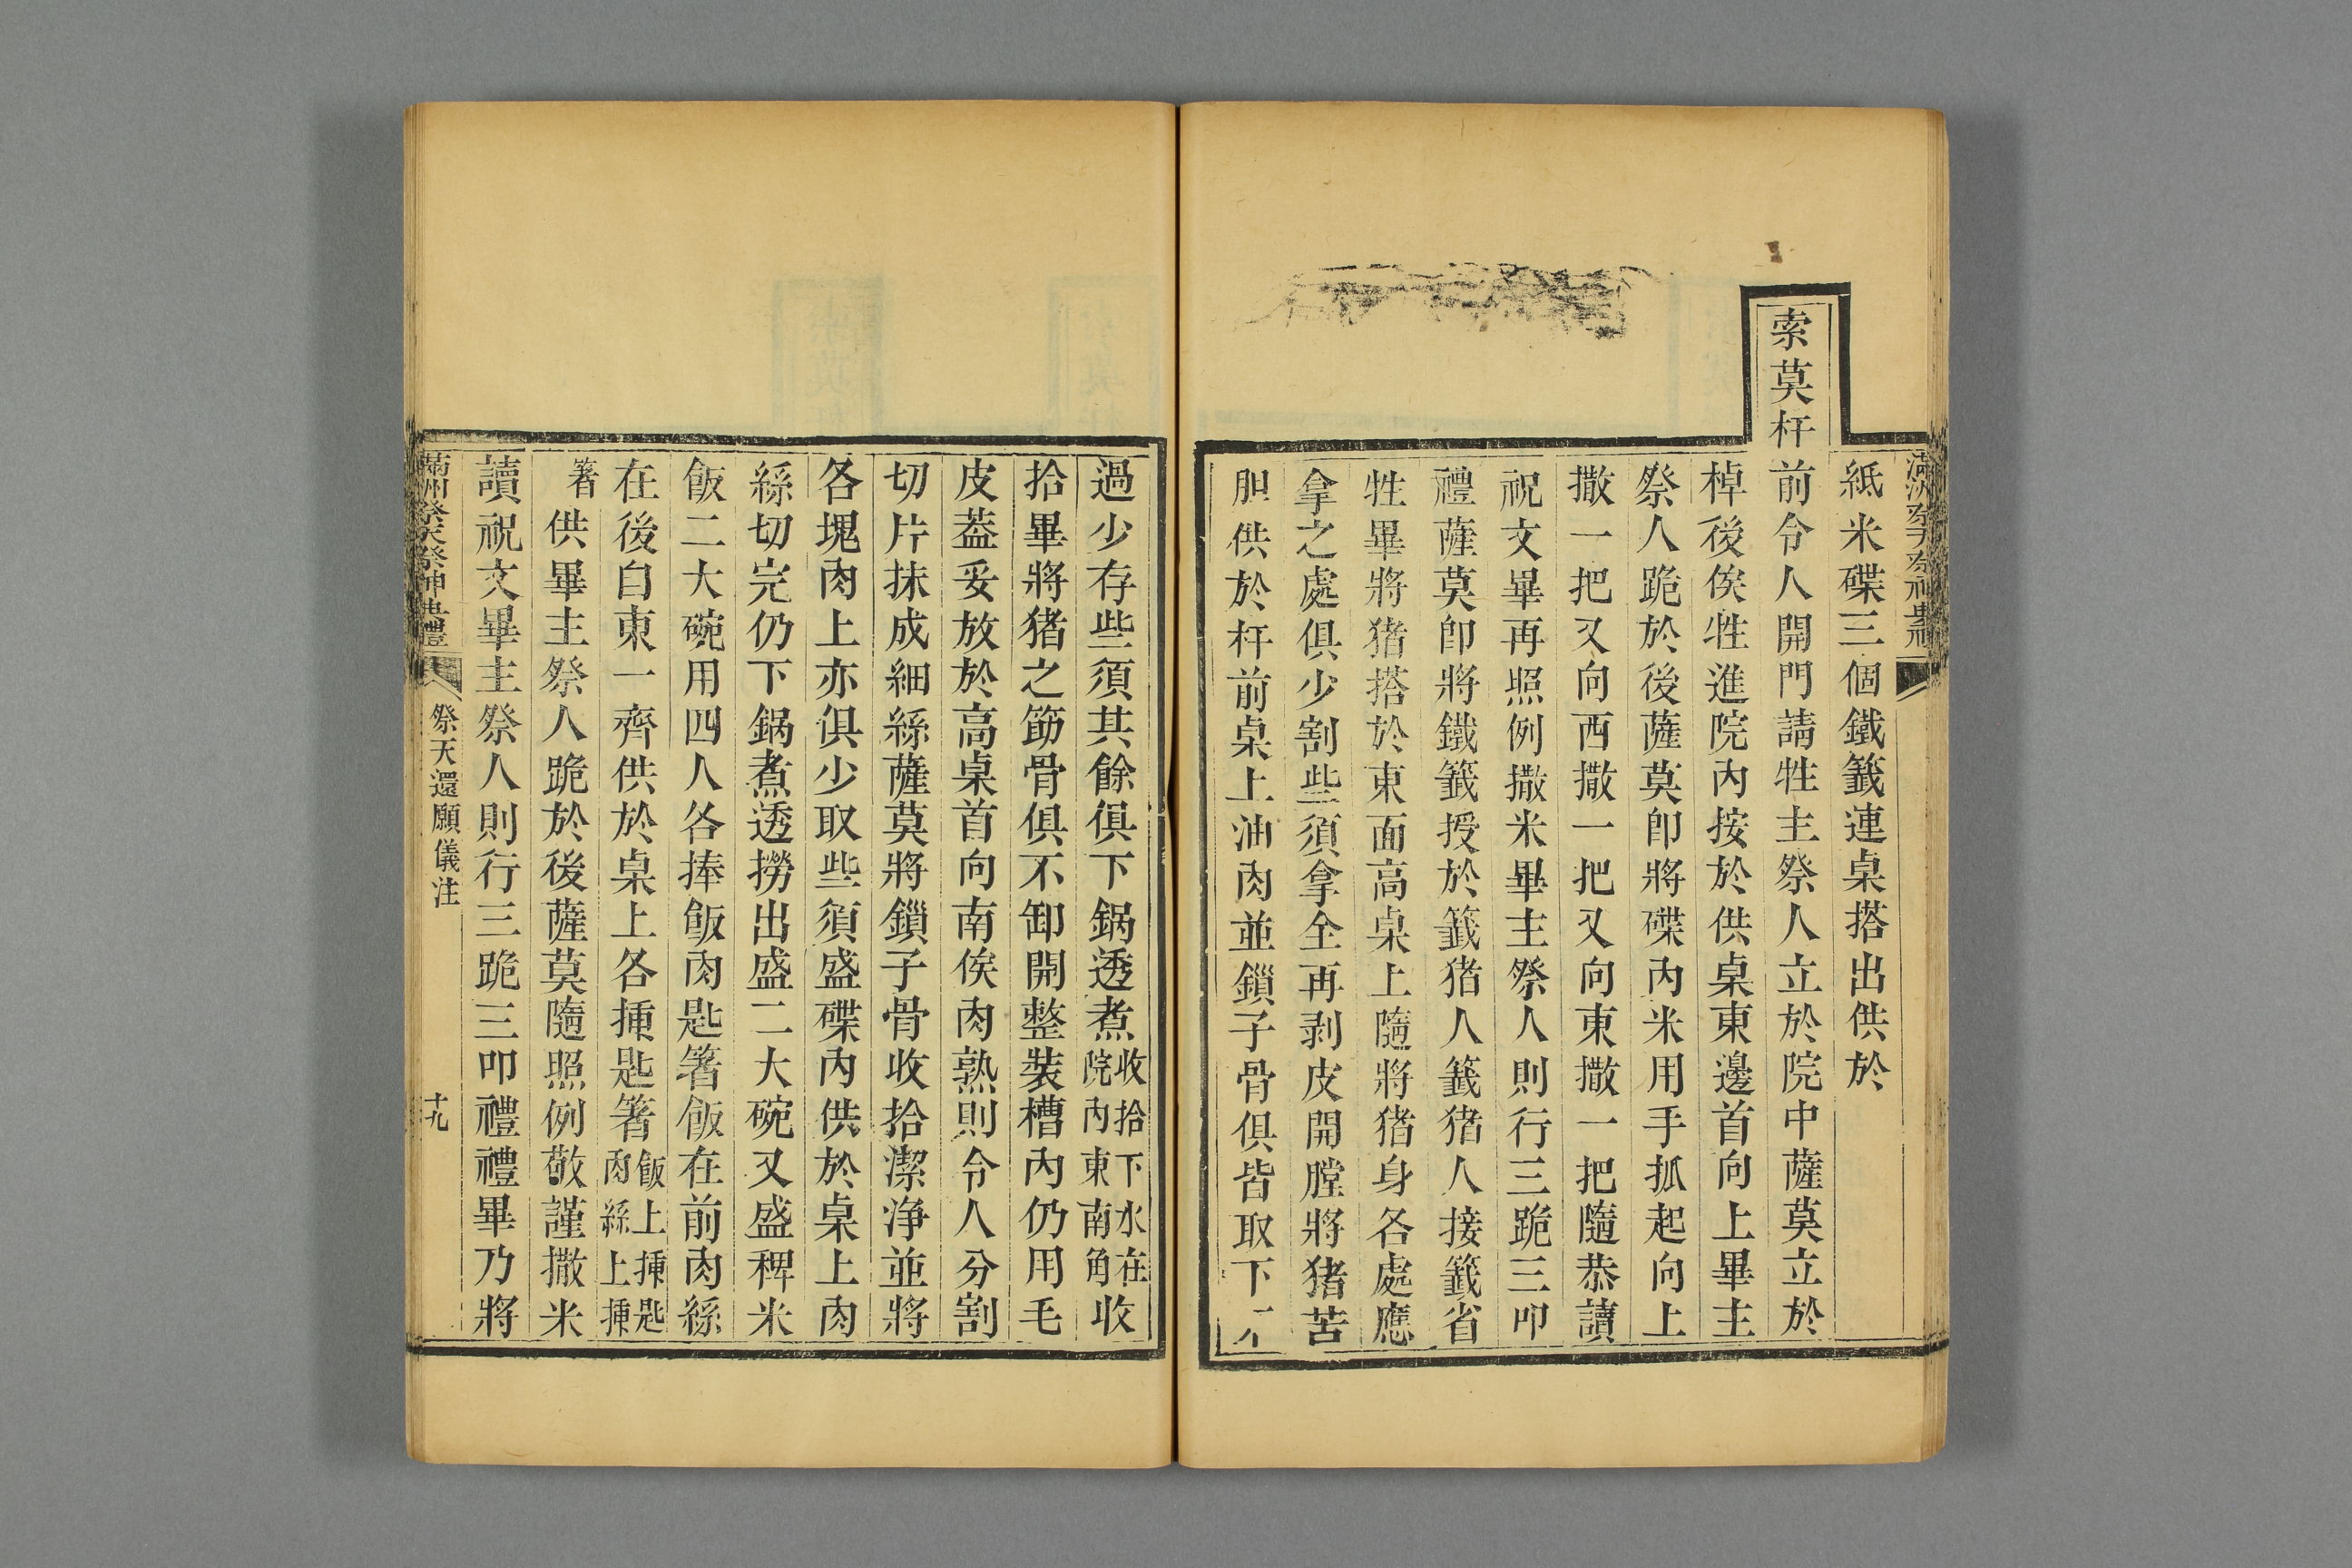 紙米碟三個鐵籤連桌搭出供於
索莫杆前令人開門請牲主祭人立於院中薩莫立於
棹後俟牲進院內按於供桌東邊首向上畢主
祭人跪於後薩莫卽將碟內米用手抓起向上
撒一把又向西撒一把又向東撒一把隨恭讀
祝文畢再照例撒米畢主祭人則行三跪三叩
禮薩莫卽將鐵籤授於籤猪人籤猪人接籤省
牲畢將猪搭於東面高桌上隨將猪身各處應
拿之處俱少割些須拿全再剥皮開膛將猪苦
胆供於杆前桌上油肉並鎖子骨俱皆取下不
過少存些須其餘俱下鍋透煮收拾下水在院內東南角收
拾畢將猪之筯骨俱不卸開整裝槽內仍用毛
皮葢妥放於高桌首向南俟肉熟則令人分割
切片抹成細絲薩莫將鎖子骨收拾潔淨並將
各塊肉上亦俱少取些須盛碟內供於桌上肉
絲切完仍下鍋煮透撈出盛二大碗又盛稗米
飯二大碗用四人各捧飯肉匙箸飯在前肉絲
在後自東一齊供於桌上各揷匙箸飯上揷匙肉絲上揷
箸供畢主祭人跪於後薩莫隨照例敬謹撒米
讀祝文畢主祭人則行三跪三叩禮禮畢乃將
滿洲祭天祭神典禮 祭天還願儀注 十九